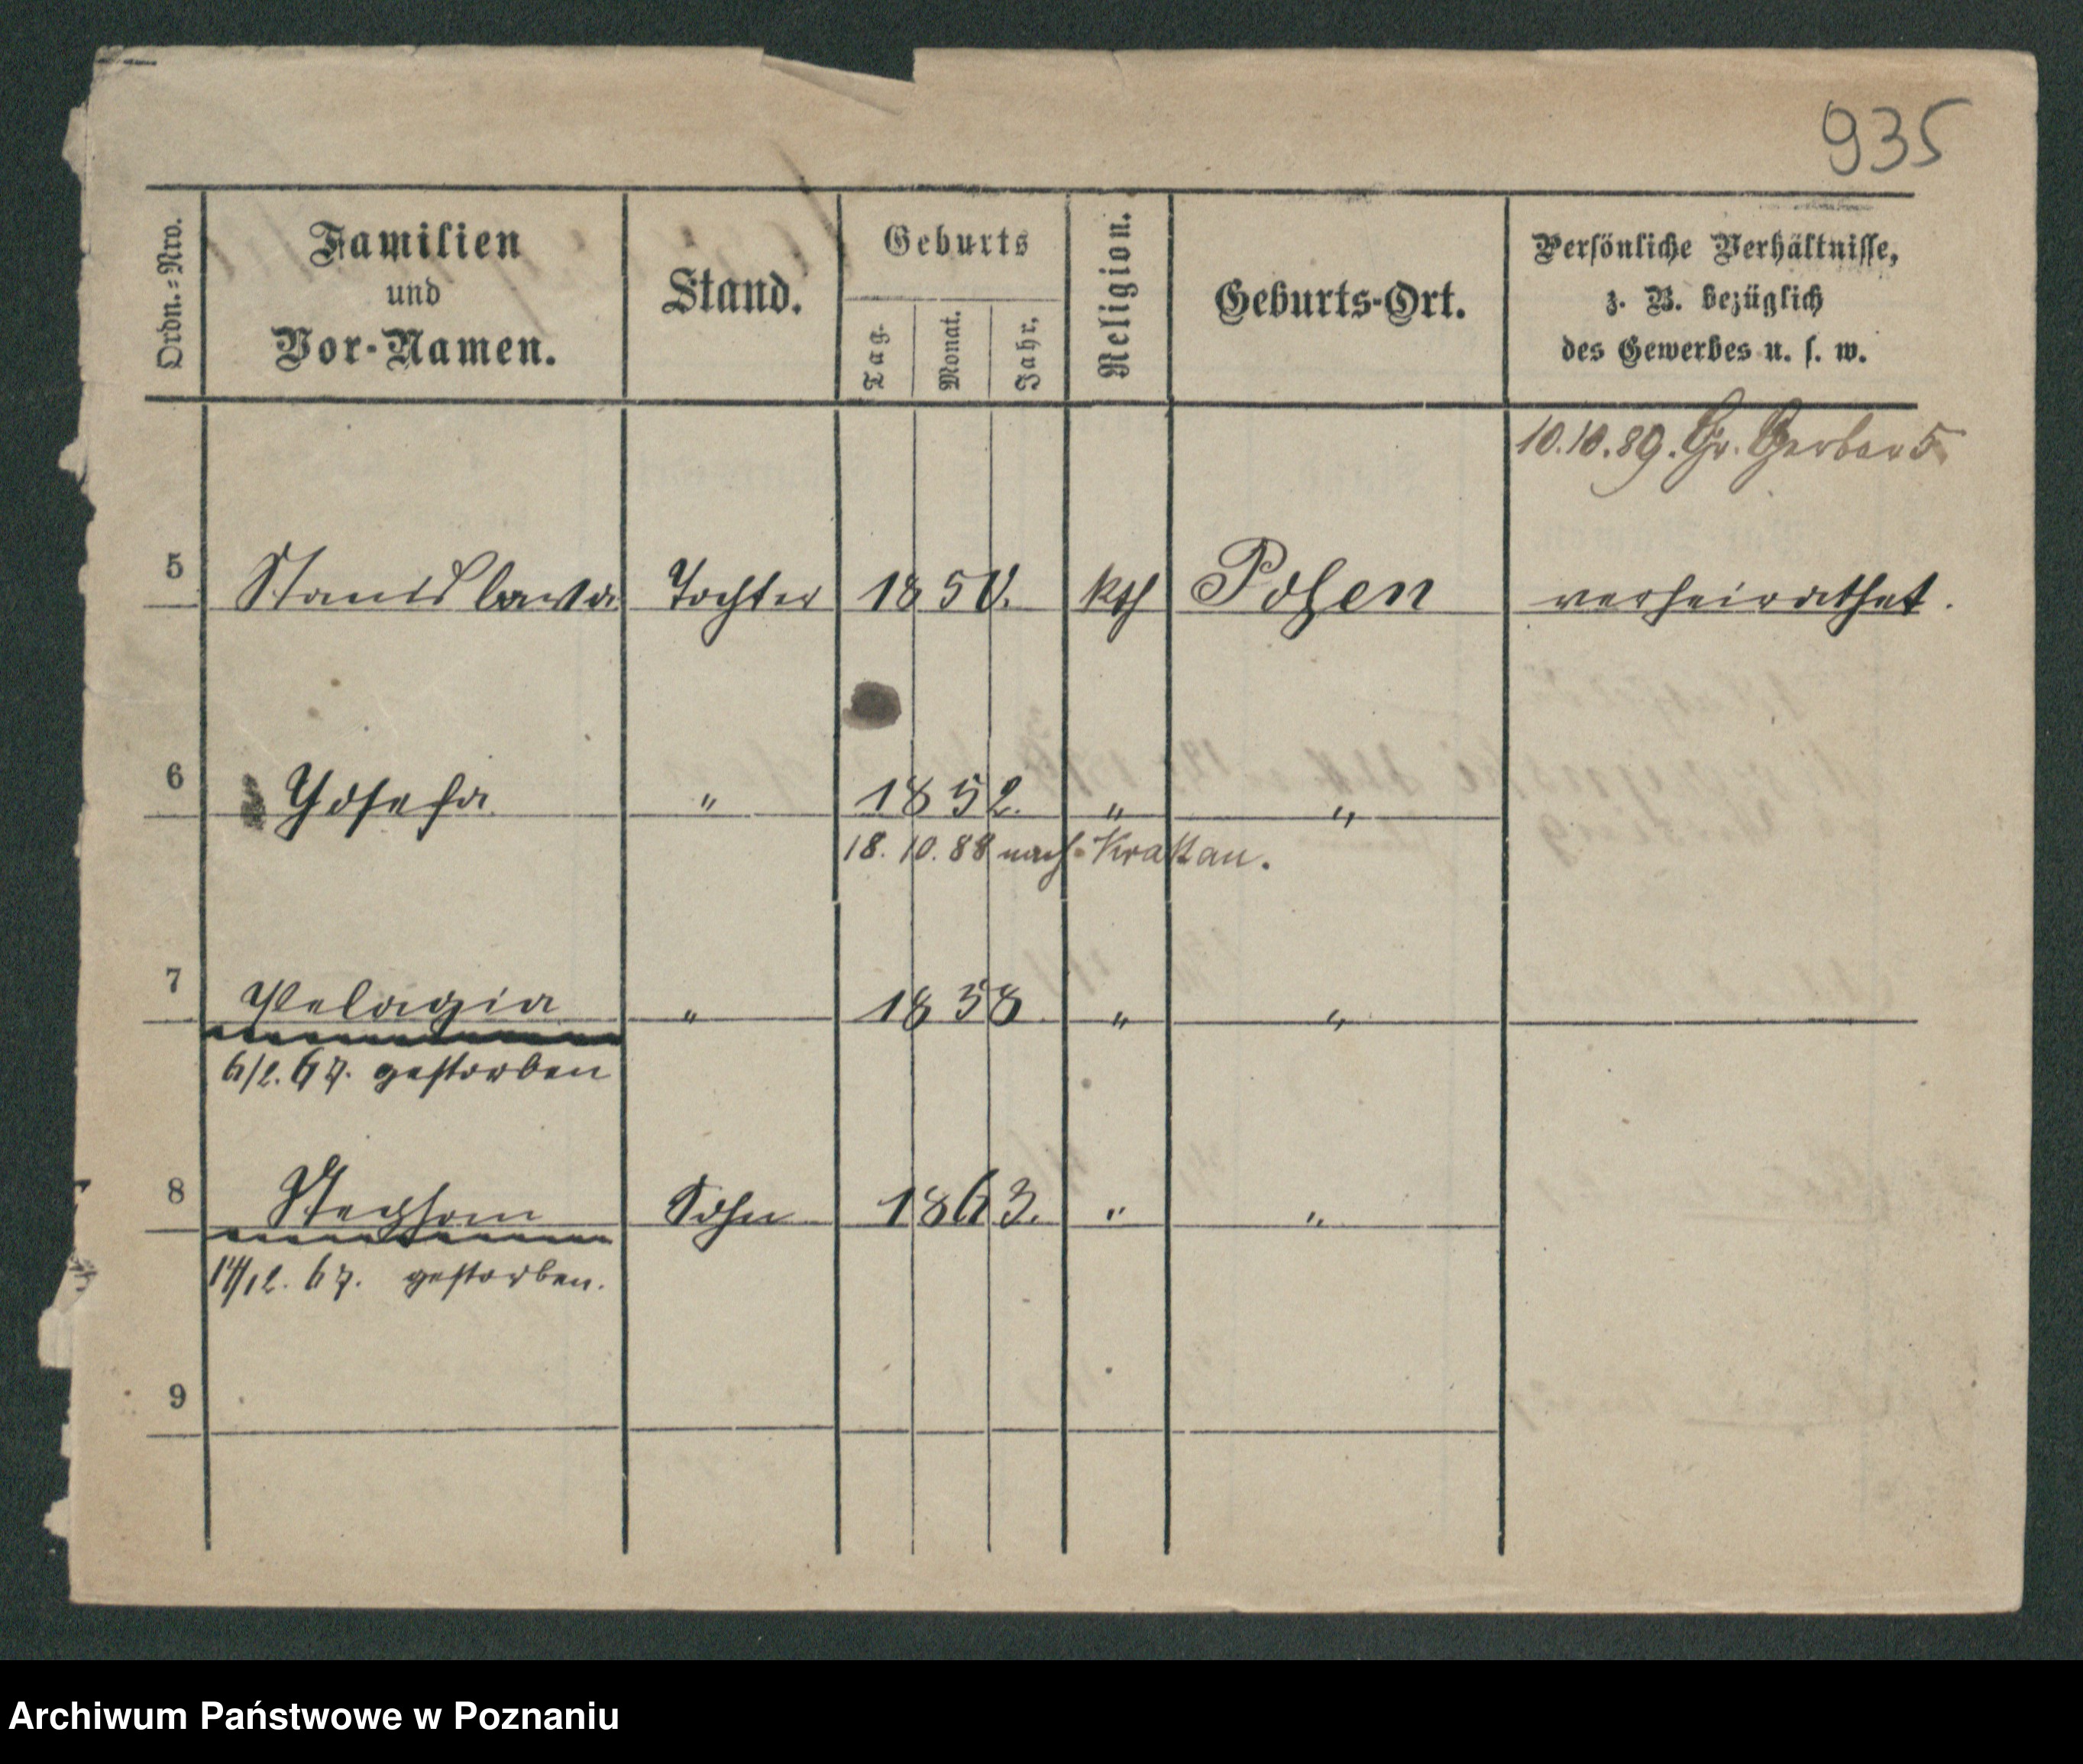 935
Ordn.=Nro.
Familien
und
Vor-Namen.
Stand.
Geburts
Tag.
Monat.
Jahr.
Religion.
Geburts-Ort.
Persönliche Verhältnisse,
z. B. bezüglich
des Gewerbes u. s. w.
10.10.89. Gr. Gerber 5
5 Stanislawa Tochter 1850. kth Posen verheirathet.
6 Josefa " 1852. " "
18.10.88 nach Krakau.
7 Pelagia " 1858 " "
6/2. 67. gestorben
8 Stephan Sohn 1863. " "
14/12. 67. gestorben.
9
Archiwum Państwowe w Poznaniu